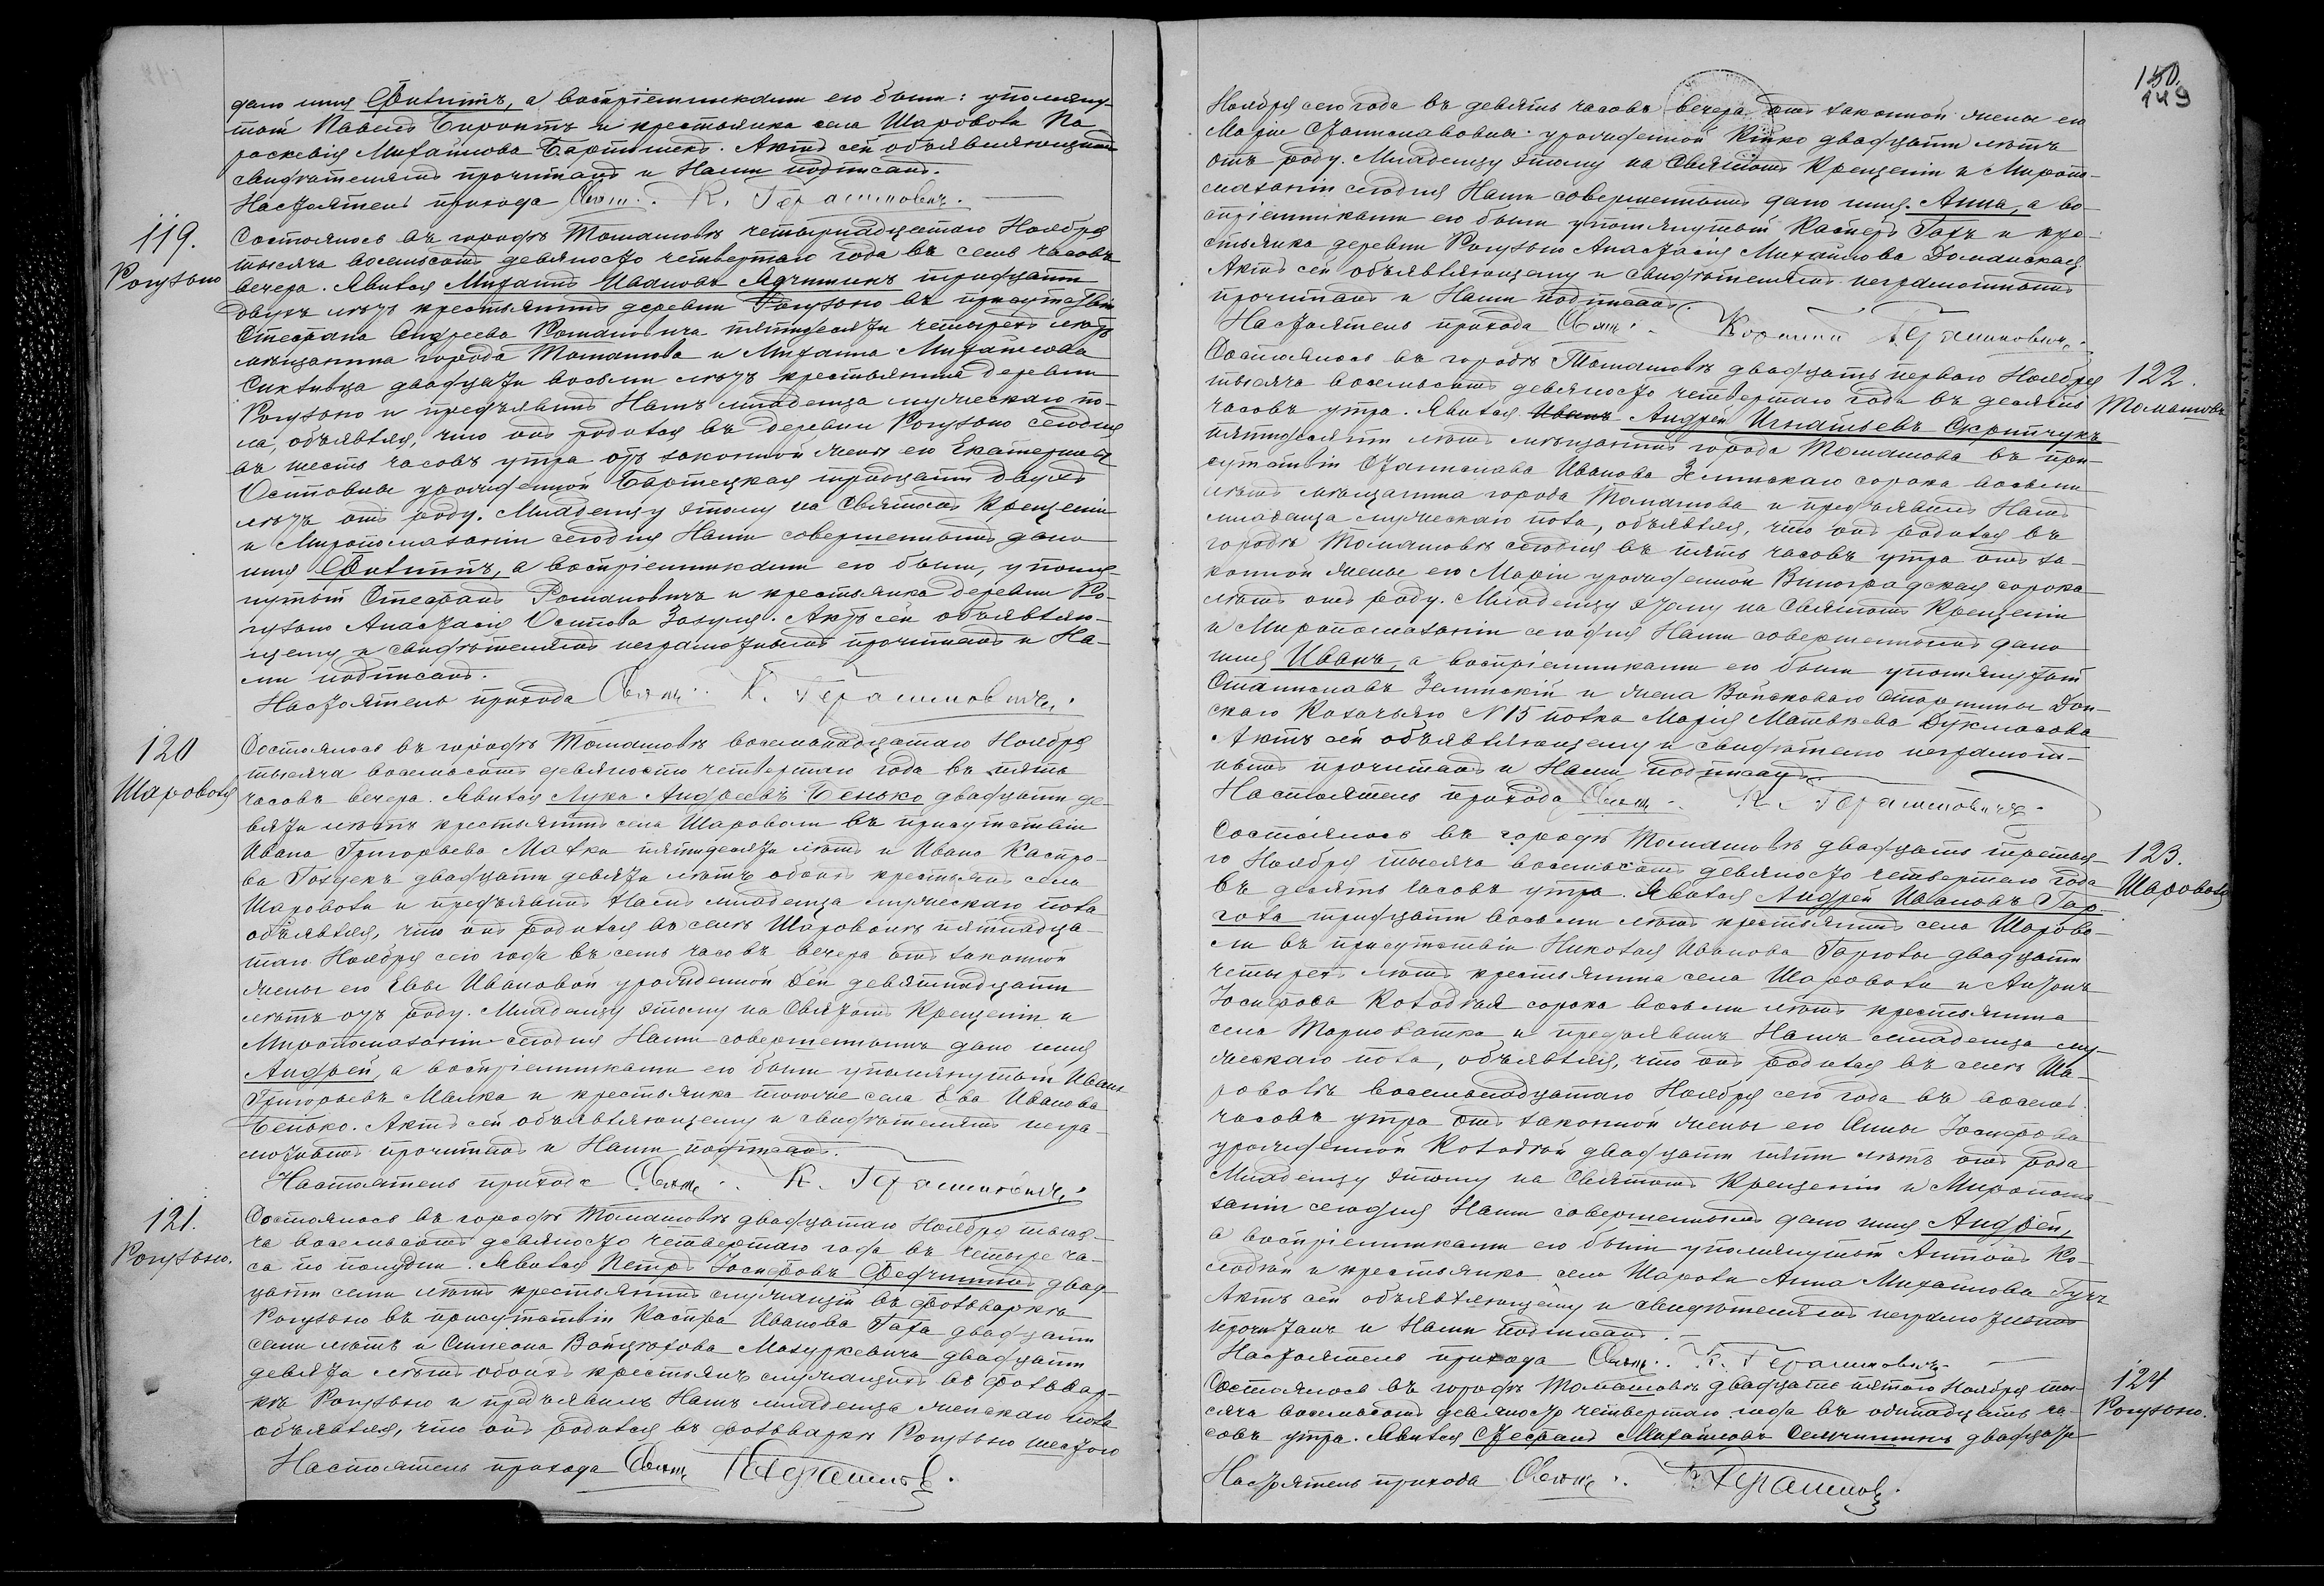 дано имя Филиппъ, а воспріемниками его были: упомяну-
тый Павелъ и крестьянка села Шаровола Па
раскевія Михайлова. Актъ сей объявляющимъ
свидѣтелямъ прочитанъ и Нами подписанъ.
Настоятель прихода Свящ. К. Герасимовичъ.
119.
Рогузьно
Состоялось въ городѣ Томашовѣ четырнадцатаго Ноября
тысяча восемьсотъ девяносто четвертаго года въ семь часовъ
вечера. Явился Михаилъ Ивановъ Ядчишинъ тридцати
двухъ лѣтъ крестьянинъ деревни Рогузьно въ присутствіи
Стефана Андреева Романовича пятидесяти четырехъ лѣтъ
мѣщанина города Томашова и Михаила Михайлова
двадцати восьми лѣтъ крестьянина деревни
Рогузьно и предъявилъ Намъ младенца мужескаго по-
ла, объявляя, что онъ родился въ деревни Рогузьно сегодня
въ шесть часовъ утра отъ законной жены его Екатерины
Осиповны урожденной Бартецкая тридцати двухъ
лѣтъ отъ роду. Младенцу этому на Святомъ Крещеніи
и Миропомазаніи сегодня Нами совершенныхъ дано
имя Филиппъ, а воспріемниками его были, упомя-
нутый Стефанъ Романовичъ и крестьянка деревни Ро-
гузьно Анастасія Осипова Зазуля. Актъ сей объявляю-
щему и свидѣтелямъ неграмотнымъ прочитанъ и На-
ми подписанъ.
Настоятель прихода Свящ. К. Герасимовичъ.
120
Шаровола
Состоялось въ городѣ Томашовѣ восемнадцатаго Ноября
тысяча восемьсотъ девяносто четвертаго года въ пять
часовъ вечера. Явился Лука Андреевъ Сенько двадцати де-
вяти лѣтъ крестьянинъ села Шароволи въ присутствіи
Ивана Григорьева Малка пятидесяти лѣтъ и Ивана Каспро-
ва двадцати девяти лѣтъ обоихъ крестьянъ села
Шаровола и предъявилъ Намъ младенца мужескаго пола
объявляя, что онъ родился въ селѣ Шароволѣ пятнадца-
таго Ноября сего года въ семь часовъ вечера отъ законной
жены его Евы Ивановой урожденной Дей девятнадцати
лѣтъ отъ роду. Младенцу этому на Святомъ Крещеніи и
Миропомазаніи сегодня Нами совершенныхъ дано имя
Андрей, а воспріемниками его были упомянутый Иванъ
Григорьевъ Малка и крестьянка тогоже села Ева Иванова
Сенько. Актъ сей объявляющему и свидѣтелямъ негра-
мотнымъ прочитанъ и Нами подписанъ.
Настоятель прихода Свящ. К. Герасимовичъ.
121.
Рогузьно.
Состоялось въ городѣ Томашовѣ двадцатаго Ноября тыся-
ча восемьсотъ девяносто четвертаго года въ четыре ча-
са по полудни. Явился Петръ Іосифовъ Федчишинъ двад-
цати семи лѣтъ крестьянинъ служащій въ фольваркѣ
Рогузьно въ присутствіи Каспра Иванова Гаха двадцати
семи лѣтъ и Симеона Войцѣхова Мазуркевича двадцати
девяти лѣтъ обоихъ крестьянъ служащихъ въ фольвар-
кѣ Рогузьно и предъявилъ Намъ младенца женскаго пола
объявляя, что онъ родился въ фольваркѣ Рогузьно шестого
Настоятель прихода Свящ. КГерасимов
150.
149
Ноября сего года въ девять часовъ вечера отъ законной жены его
Маріи Станиславовны урожденной Кипко двадцати лѣтъ
отъ роду. Младенцу этому на Святомъ Крещеніи и Миропо-
мазаніи сегодня Нами совершенныхъ дано имя Анна, а во-
спріемниками его были упомянутый Касперъ Гахъ и кре-
стьянка деревни Рогузьно Анастасія Михайлова Доманская
Актъ сей объявляющему и свидѣтелямъ неграмотнымъ
прочитанъ и Нами подписанъ.
Настоятель прихода Свящ. Корнилій Герасимовичъ.
122.
Томашовъ
Состоялось въ городѣ Томашовѣ двадцать перваго Ноября
тысяча восемьсотъ девяносто четвертаго года въ десять
часовъ утра. Явился Иванъ Андрей Игнатьевъ Скрипчукъ
пятидесяти лѣтъ мѣщанинъ города Томашова въ при-
сутствіи Станислава Иванова Зелинскаго сорока восьми
лѣтъ мѣщанина города Томашова и предъявилъ Намъ
младенца мужескаго пола, объявляя, что онъ родился въ
городѣ Томашовѣ сегодня въ пять часовъ утра отъ за-
конной жены его Маріи урожденной Виноградская сорока
лѣтъ отъ роду. Младенцу этому на Святомъ Крещеніи
и Миропомазаніи сегодня Нами совершенныхъ дано
имя Иванъ, а воспріемниками его были упомянутый
Станиславъ Зелинскій и жена Войсковаго Старшины Дон-
скаго Козачьяго N 15 полка Марія Матвѣева Дукмасова
Актъ сей объявляющему и свидѣтелю неграмот-
нымъ прочитанъ и Нами подписанъ.
Настоятель прихода Свящ. К. Герасимовичъ.
123.
Шаровола
Состоялось въ городѣ Томашовѣ двадцать третья-
го Ноября тысяча восемьсотъ девяносто четвертаго года
въ десять часовъ утра. Явился Андрей Ивановъ Гар-
гола тридцати восьми лѣтъ крестьянинъ села Шарово-
ли въ присутствіи Николая Иванова двадцати
четырехъ лѣтъ крестьянина села Шаровола и Антона
Іосифова Колодзея сорока восьми лѣтъ крестьянина
села Тарноватка и предъявилъ Намъ младенца му-
жескаго пола, объявляя, что онъ родился въ селѣ Ша-
роволѣ восемнадцатаго Ноября сего года въ восемь
часовъ утра отъ законной жены его Анны Іосифова
урожденной Колодзей двадцати пяти лѣтъ отъ рода
Младенцу этому на Святомъ Крещеніи и Миропома-
заніи сегодня Нами совершенныхъ дано имя Андрей,
а воспріемниками его были упомянутый Антонъ Ко-
лодзей и крестьянка села Шаровола Анна Михайлова
Актъ сей объявляющему и свидѣтелямъ неграмотнымъ
прочитанъ и Нами подписанъ.
Настоятель прихода Свящ. К. Герасимовичъ.
124
Рогузьно.
Состоялось въ городѣ Томашовѣ двадцать пятаго Ноября ты-
сяча восемьсотъ девяносто четвертаго года въ одинадцать ча-
совъ утра. Явился Стефанъ Михайловъ Семчишинъ двадцати
Настоятель прихода Свящ. КГерасимов